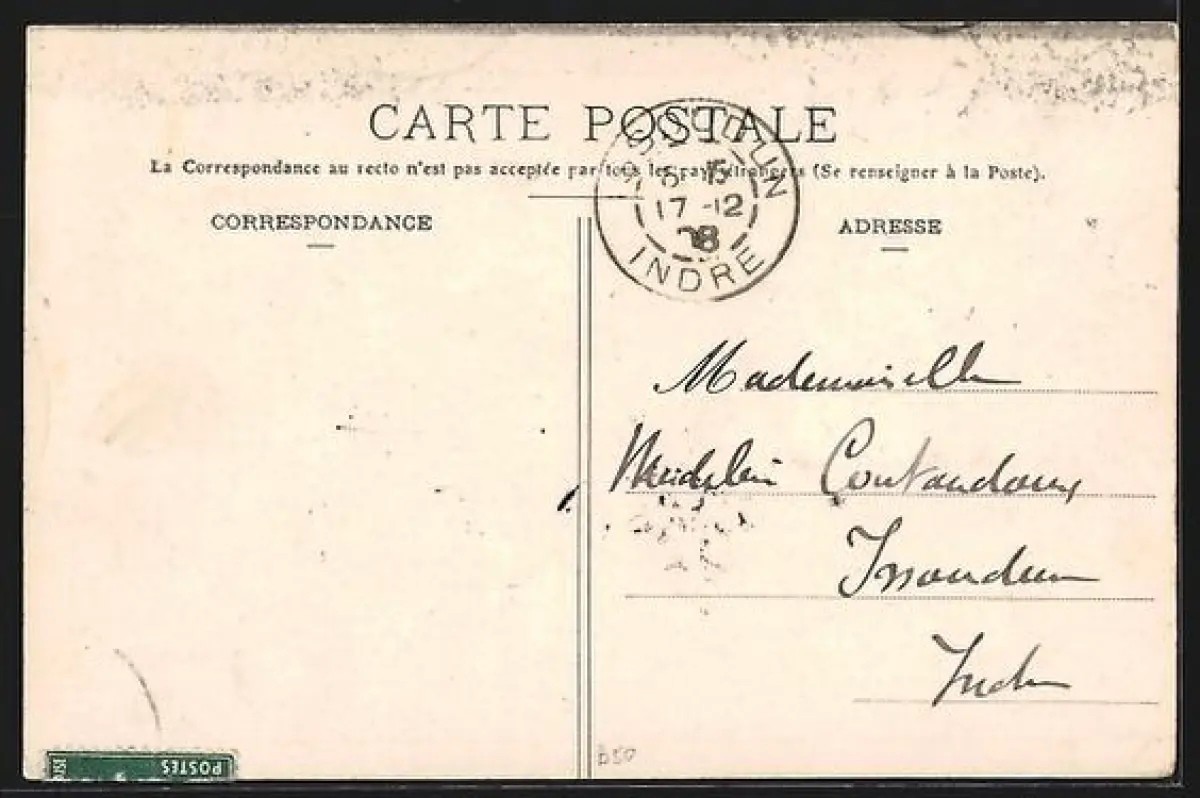 CARTE POSTALE
La Correspondance au recto n'est pas acceptée par tous les pays étrangers (Se renseigner à la Poste).
CORRESPONDANCE
ADRESSE
ISSOUDUN
8 15
17-12
08
INDRE
Mademoiselle
Issoudun
Indre
POSTES
B50